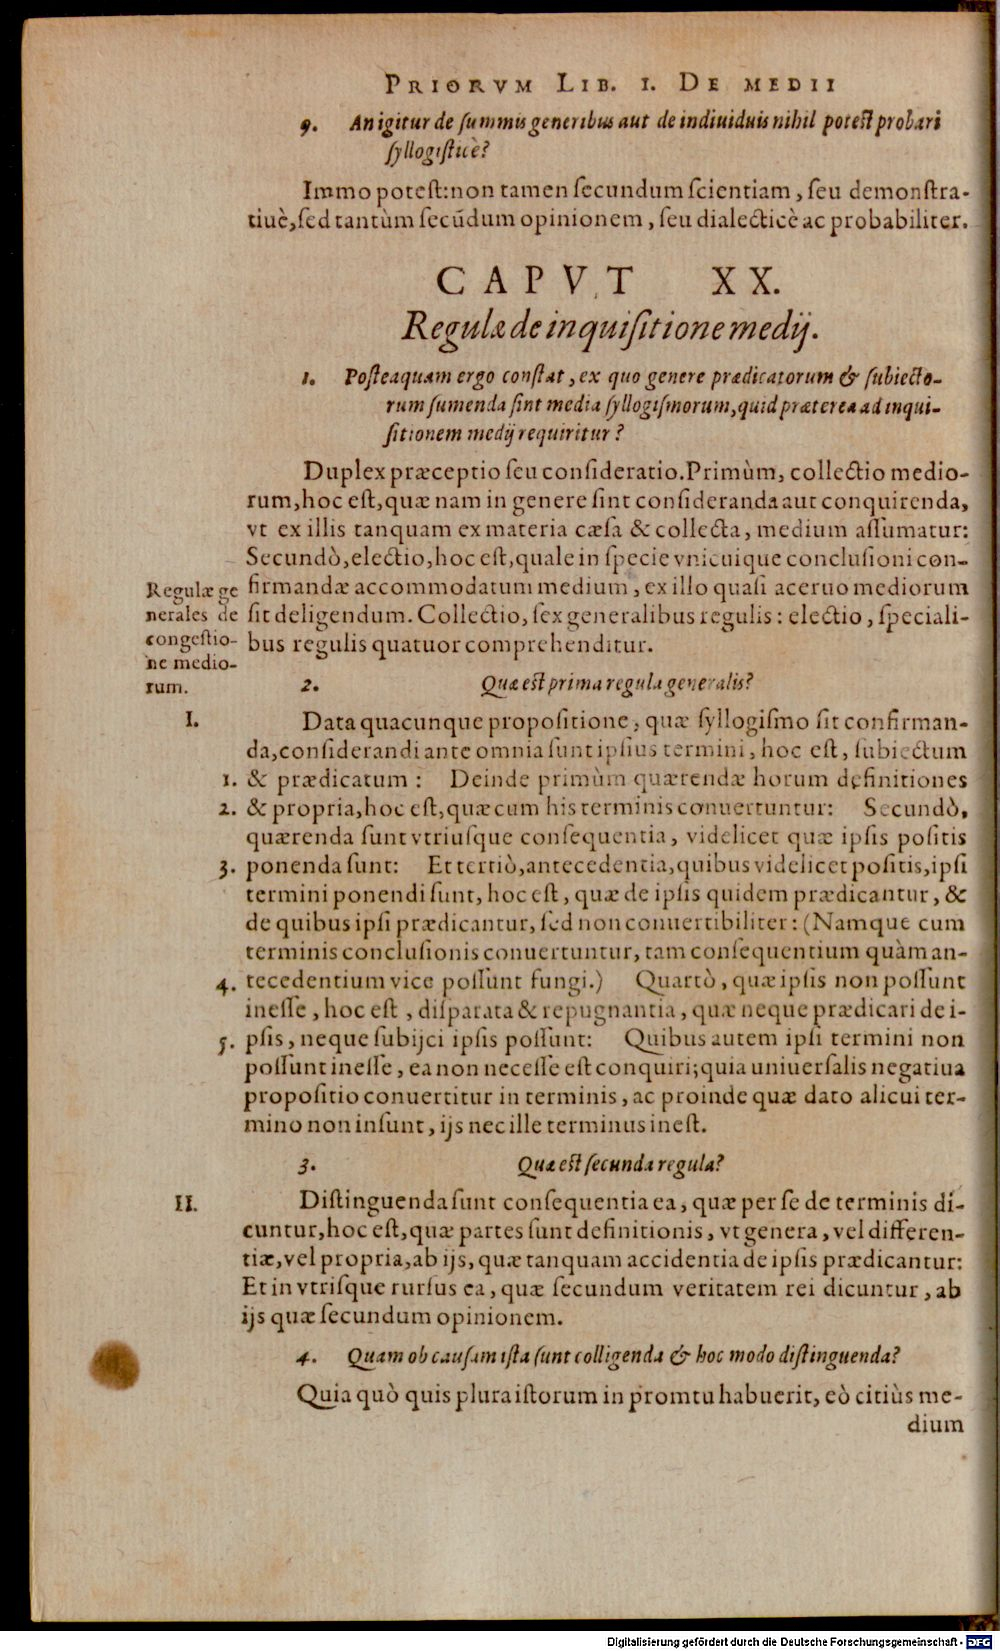 PRIORVM LIB. I. DE MEDII
9. An igitur de ſummis generibus aut de indiuiduis nihil poteſt probari
ſyllogiſticè?
Immo poteſt: non tamen ſecundum ſcientiam, ſeu demonſtra-
tiuè, ſed tantùm ſecũdum opinionem, ſeu dialecticè ac probabiliter.
CAPVT XX.
Regulæ de inquiſitione medij.
1. Poſteaquam ergo conſtat, ex quo genere prædicatorum & ſubiecto-
rum ſumenda ſint media ſyllogiſmorum, quid præterea ad inqui-
ſitionem medij requiritur?
Duplex præceptio ſeu conſideratio. Primùm, collectio medio-
rum, hoc eſt, quæ nam in genere ſint conſideranda aut conquirenda,
vt ex illis tanquam ex materia cæſa & collecta, medium aſſumatur:
Secundò, electio, hoc eſt, quale in ſpecie vnicuique concluſioni con-
firmandæ accommodatum medium, ex illo quaſi aceruo mediorum
ſit deligendum. Collectio, ſex generalibus regulis: electio, ſpeciali-
bus regulis quatuor comprehenditur.
Regulæ ge
nerales de
congeſtio-
ne medio-
rum.
2. Quæ eſt prima regula generalis?
I. Data quacunque propoſitione, quæ ſyllogiſmo ſit confirman-
da, conſiderandi ante omnia ſunt ipſius termini, hoc eſt, ſubiectum
1. & prædicatum: Deinde primùm quærendæ horum definitiones
2. & propria, hoc eſt, quæ cum his terminis conuertuntur: Secundò,
quærenda ſunt vtriuſque conſequentia, videlicet quæ ipſis poſitis
3. ponenda ſunt: Et tertiò, antecedentia, quibus videlicet poſitis, ipſi
termini ponendi ſunt, hoc eſt, quæ de ipſis quidem prædicantur, &
de quibus ipſi prædicantur, ſed non conuertibiliter: (Namque cum
terminis concluſionis conuertuntur, tam conſequentium quàm an-
tecedentium vice poſſunt fungi.)
4. Quartò, quæ ipſis non poſſunt
ineſſe, hoc eſt, diſparata & repugnantia, quæ neque prædicari de i-
5. pſis, neque ſubijci ipſis poſſunt: Quibus autem ipſi termini non
poſſunt ineſſe, ea non neceſſe eſt conquiri; quia uniuerſalis negatiua
propoſitio conuertitur in terminis, ac proinde quæ dato alicui ter-
mino non inſunt, ijs nec ille terminus ineſt.
3. Quæ eſt ſecunda regula?
II. Diſtinguenda ſunt conſequentia ea, quæ per ſe de terminis di-
cuntur, hoc eſt, quæ partes ſunt definitionis, vt genera, vel differen-
tiæ, vel propria, ab ijs, quæ tanquam accidentia de ipſis prædicantur:
Et in vtriſque rurſus ea, quæ ſecundum veritatem rei dicuntur, ab
ijs quæ ſecundum opinionem.
4. Quam ob cauſam iſta ſunt colligenda & hoc modo diſtinguenda?
Quia quò quis plura iſtorum in promtu habuerit, eò citiùs me-
dium
Digitalisierung gefördert durch die Deutsche Forschungsgemeinschaft - DFG